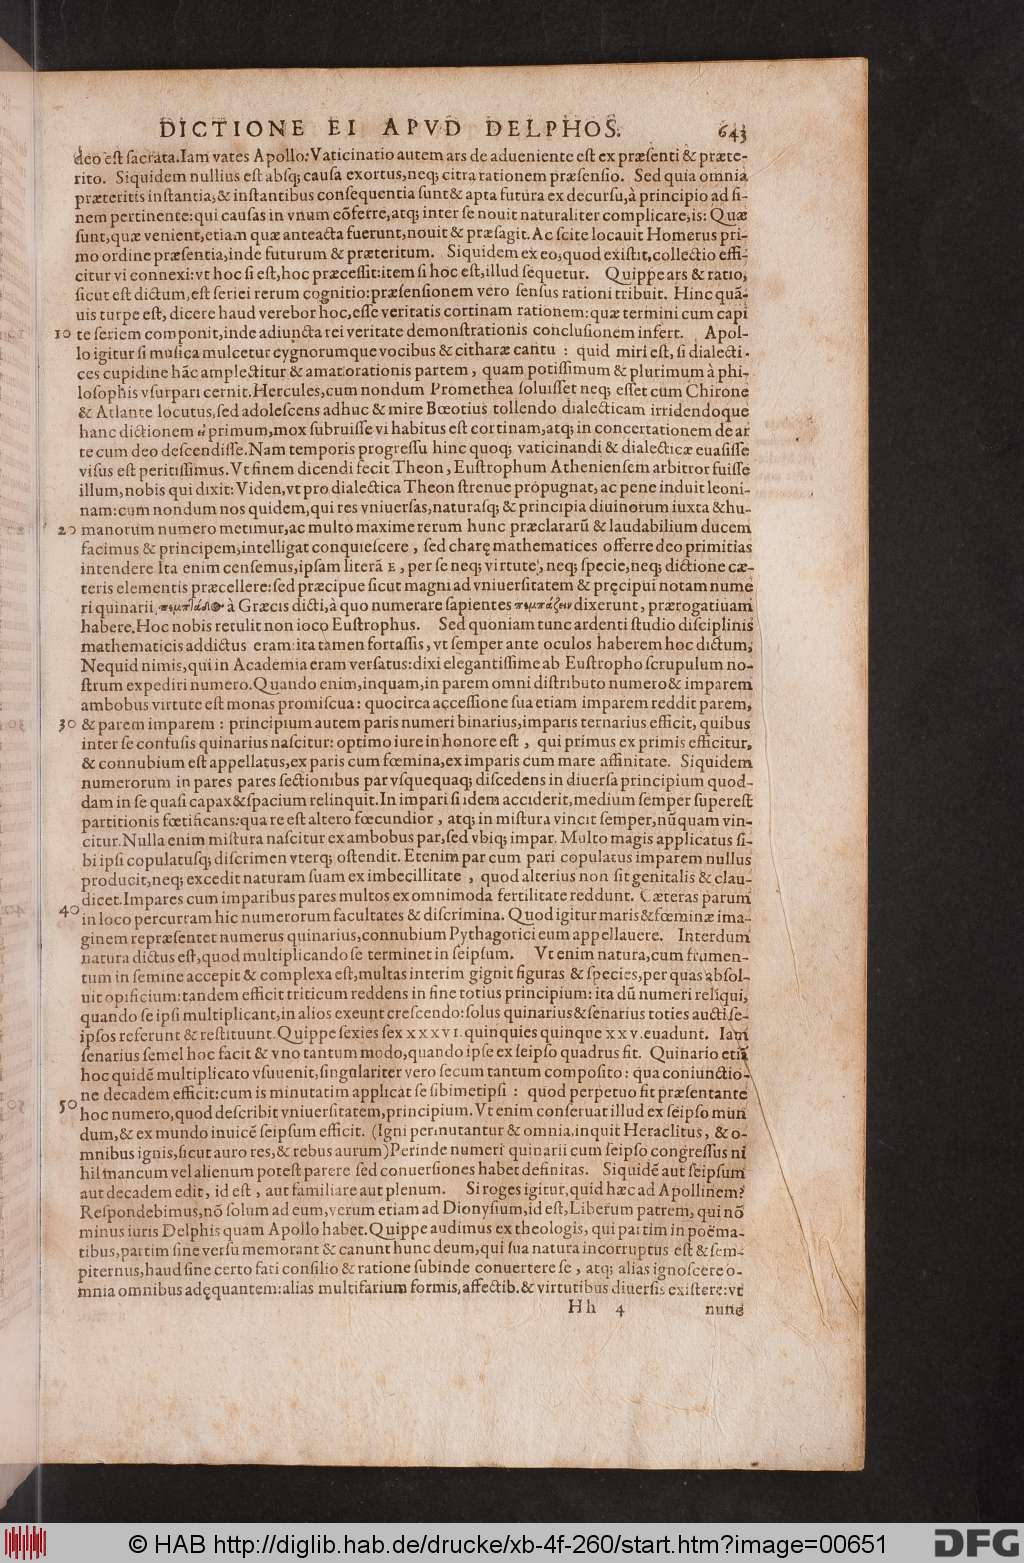 DICTIONE EI APVD DELPHOS. 643
deo est sacrata. Iam vates Apollo: Vaticinatio autem ars de adueniente est ex præsenti & præte-
rito. Siquidem nullius est absq; causa exortus, neq; citra rationem præsensio. Sed quia omnia
præteritis instantia, & instantibus consequentia sunt & apta futura ex decursu, à principio ad fi-
nem pertinente: qui causas in vnum cõferre, atq; inter se nouit naturaliter complicare, is: Quæ
sunt, quæ venient, etiam quæ anteacta fuerunt, nouit & præsagit. Ac scite locauit Homerus pri-
mo ordine præsentia, inde futurum & præteritum. Siquidem ex eo, quod existit, collectio effi-
citur vi connexi: vt hoc si est, hoc præcessit: item si hoc est, illud sequetur. Quippe ars & ratio,
sicut est dictum, est seriei rerum cognitio: præsensionem vero sensus rationi tribuit. Hinc quã-
uis turpe est, dicere haud verebor hoc, esse veritatis cortinam rationem: quæ termini cum capi
10 te seriem componit, inde adiuncta rei veritate demonstrationis conclusionem infert. Apol-
lo igitur si musica mulcetur cygnorumque vocibus & citharæ cantu : quid miri est, si dialecti-
ces cupidine hãc amplectitur & amat orationis partem, quam potissimum & plurimum à phi-
losophis vsurpari cernit. Hercules, cum nondum Promethea soluisset neq; esset cum Chirone
& Atlante locutus, sed adolescens adhuc & mire Bœotius tollendo dialecticam irridendoque
hanc dictionem εἰ primum, mox subruisse vi habitus est cortinam, atq; in concertationem de ar
te cum deo descendisse. Nam temporis progressu hinc quoq; vaticinandi & dialecticæ euasisse
visus est peritissimus. Vt finem dicendi fecit Theon, Eustrophum Atheniensem arbitror fuisse
illum, nobis qui dixit: Viden, vt pro dialectica Theon strenue propugnat, ac pene induit leoni-
nam: cum nondum nos quidem, qui res vniuersas, naturasq; & principia diuinorum iuxta & hu-
20 manorum numero metimur, ac multo maxime rerum hunc præclararũ & laudabilium ducem
facimus & principem, intelligat conquiescere, sed charę mathematices offerre deo primitias
intendere Ita enim censemus, ipsam literã E, per se neq; virtute, neq; specie, neq; dictione cæ-
teris elementis præcellere: sed præcipue sicut magni ad vniuersitatem & pręcipui notam nume
ri quinarii, πεμπάδος à Græcis dicti, à quo numerare sapientes πεμπάζειν dixerunt, prærogatiuam
habere. Hoc nobis retulit non ioco Eustrophus. Sed quoniam tunc ardenti studio disciplinis
mathematicis addictus eram: ita tamen fortassis, vt semper ante oculos haberem hoc dictum,
Nequid nimis, qui in Academia eram versatus: dixi elegantissime ab Eustropho scrupulum no-
strum expediri numero. Quando enim, inquam, in parem omni distributo numero & imparem
ambobus virtute est monas promiscua: quocirca accessione sua etiam imparem reddit parem,
30 & parem imparem : principium autem paris numeri binarius, imparis ternarius efficit, quibus
inter se confusis quinarius nascitur: optimo iure in honore est, qui primus ex primis efficitur,
& connubium est appellatus, ex paris cum fœmina, ex imparis cum mare affinitate. Siquidem
numerorum in pares pares sectionibus par vsquequaq; discedens in diuersa principium quod-
dam in se quasi capax & spacium relinquit. In impari si idem acciderit, medium semper superest
partitionis fœtificans: qua re est altero fœcundior, atq; in mistura vincit semper, nũquam vin-
citur. Nulla enim mistura nascitur ex ambobus par, sed vbiq; impar. Multo magis applicatus si-
bi ipsi copulatusq; discrimen vterq; ostendit. Etenim par cum pari copulatus imparem nullus
producit, neq; excedit naturam suam ex imbecillitate, quod alterius non sit genitalis & clau-
dicet. Impares cum imparibus pares multos ex omnimoda fertilitate reddunt. Cæteras parum
40 in loco percurram hic numerorum facultates & discrimina. Quod igitur maris & fœminæ ima-
ginem repræsentet numerus quinarius, connubium Pythagorici eum appellauere. Interdum
natura dictus est, quod multiplicando se terminet in seipsum. Vt enim natura, cum frumen-
tum in semine accepit & complexa est, multas interim gignit figuras & species, per quas absol-
uit opificium: tandem efficit triticum reddens in fine totius principium: ita dũ numeri reliqui,
quando se ipsi multiplicant, in alios exeunt crescendo: solus quinarius & senarius toties aucti se-
ipsos referunt & restituunt. Quippe sexies sex XXXVI. quinquies quinque XXV. euadunt. Iam
senarius semel hoc facit & vno tantum modo, quando ipse ex seipso quadrus fit. Quinario etiã
hoc quidẽ multiplicato vsuuenit, singulariter vero secum tantum composito: qua coniunctio-
ne decadem efficit: cum is minutatim applicat se sibimetipsi : quod perpetuo fit præsentante
50 hoc numero, quod describit vniuersitatem, principium. Vt enim conseruat illud ex seipso mun
dum, & ex mundo inuicẽ seipsum efficit. (Igni permutantur & omnia, inquit Heraclitus, & o-
mnibus ignis, sicut auro res, & rebus aurum) Perinde numeri quinarii cum seipso congressus ni
hil mancum vel alienum potest parere sed conuersiones habet definitas. Siquidẽ aut seipsum
aut decadem edit, id est, aut familiare aut plenum. Si roges igitur, quid hæc ad Apollinem?
Respondebimus, nõ solum ad eum, verum etiam ad Dionysium, id est, Liberum patrem, qui nõ
minus iuris Delphis quam Apollo habet. Quippe audimus ex theologis, qui partim in poëma-
tibus, partim sine versu memorant & canunt hunc deum, qui sua natura incorruptus est & sem-
piternus, haud sine certo fati consilio & ratione subinde conuertere se, atq; alias ignoscere o-
mnia omnibus adęquantem: alias multifarium formis, affectib. & virtutibus diuersis existere: vt
Hh 4 nunc
© HAB http://diglib.hab.de/drucke/xb-4f-260/start.htm?image=00651 DFG